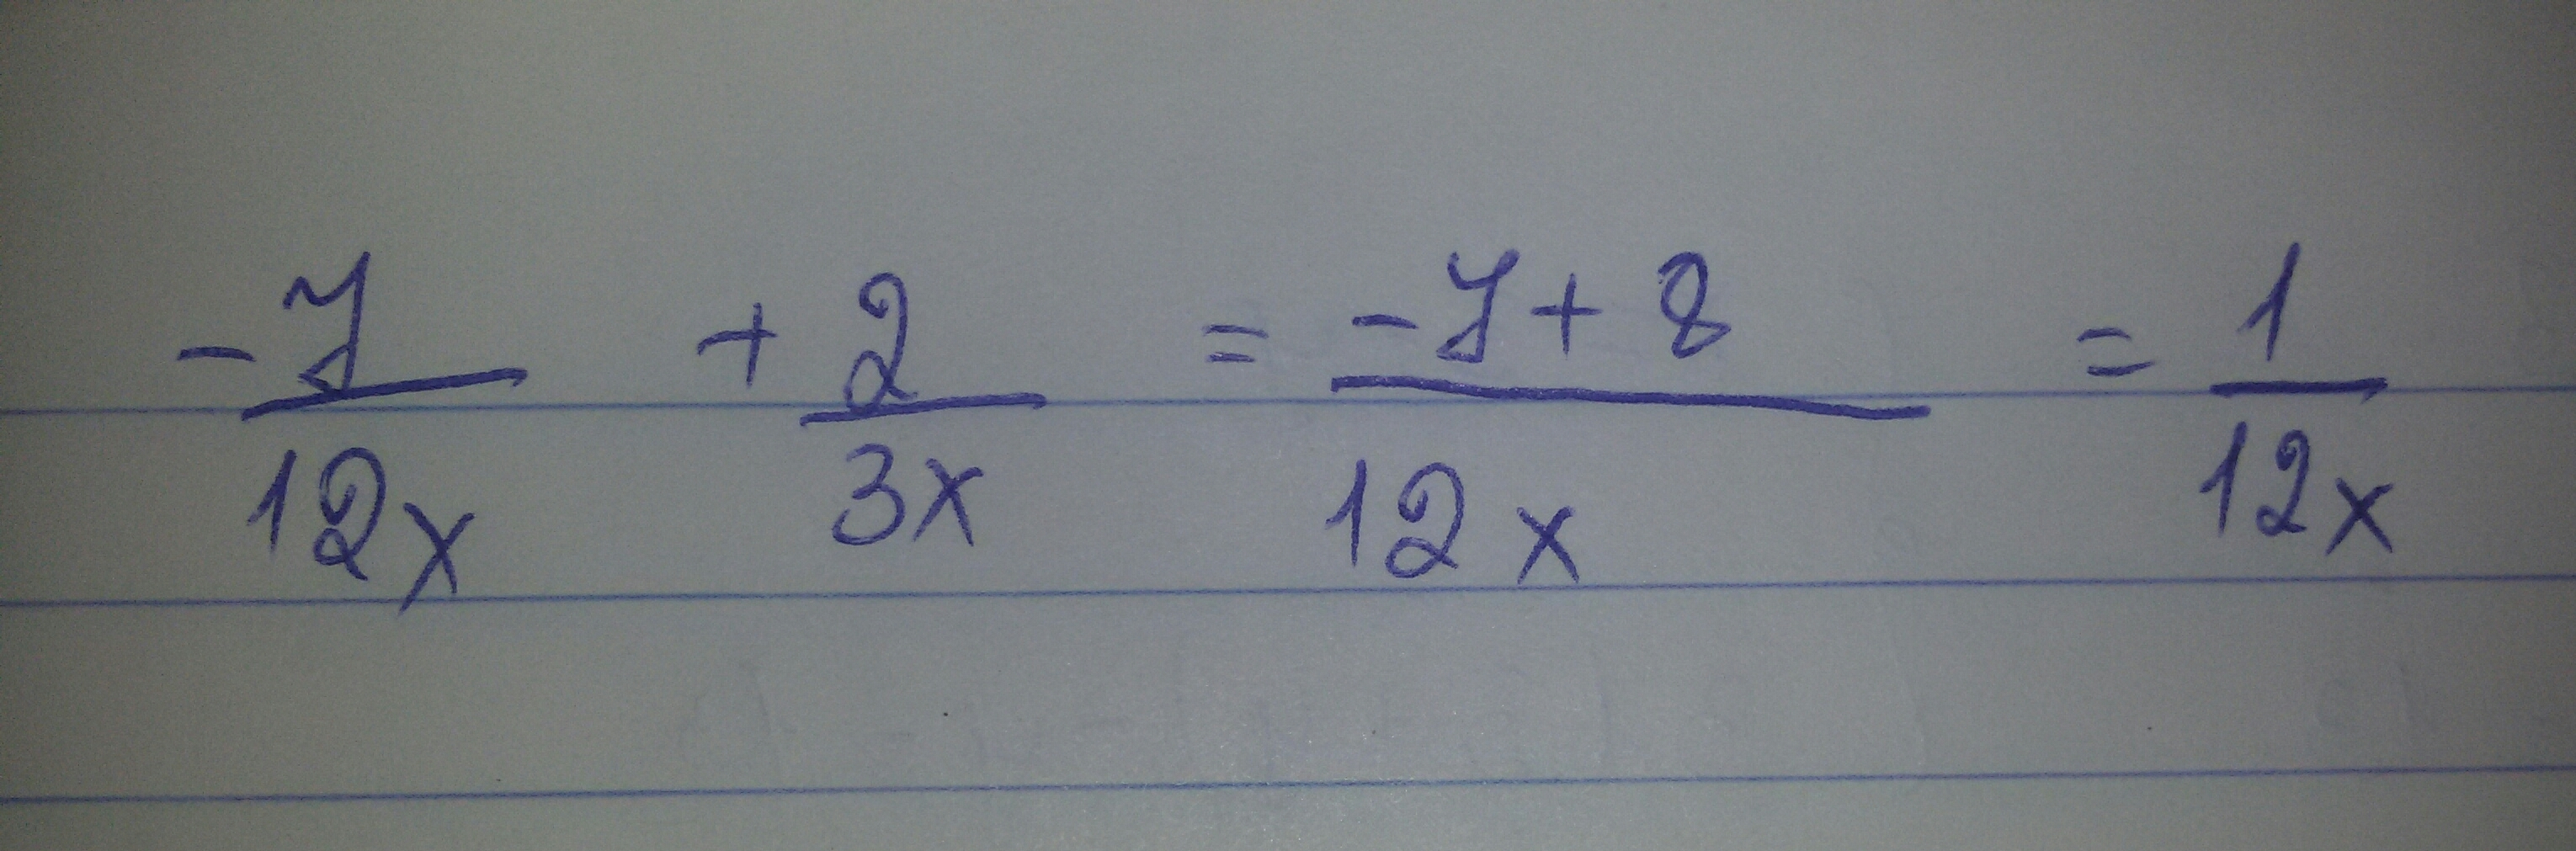 -7/12x + 2/3x = -7+8/12x = 1/12x